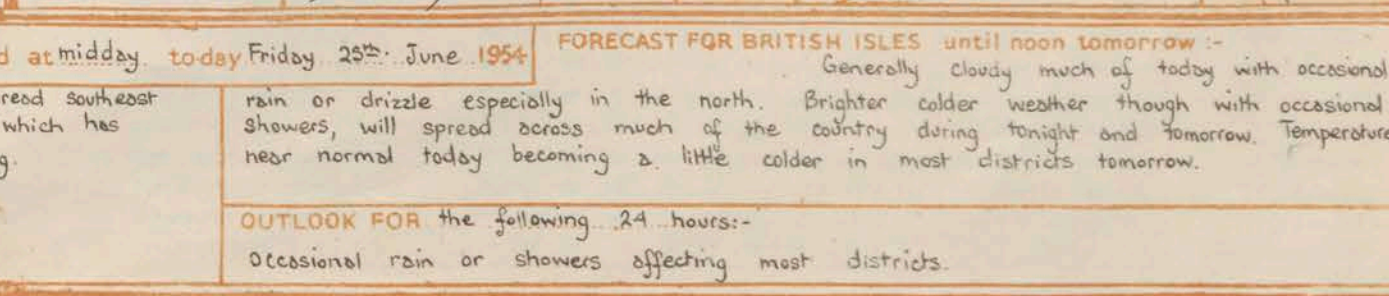 d at midday today Friday 25th June 1954
FORECAST FOR BRITISH ISLES until noon tomorrow :-
Generally cloudy much of today with occasional
rain or drizzle especially in the north. Brighter colder weather though with occasional
showers, will spread across much of the country during tonight and tomorrow. Temperature
near normal today becoming a little colder in most districts tomorrow.
read southeast
which has
g.
OUTLOOK FOR the following 24 hours:-
Occasional rain or showers affecting most districts.